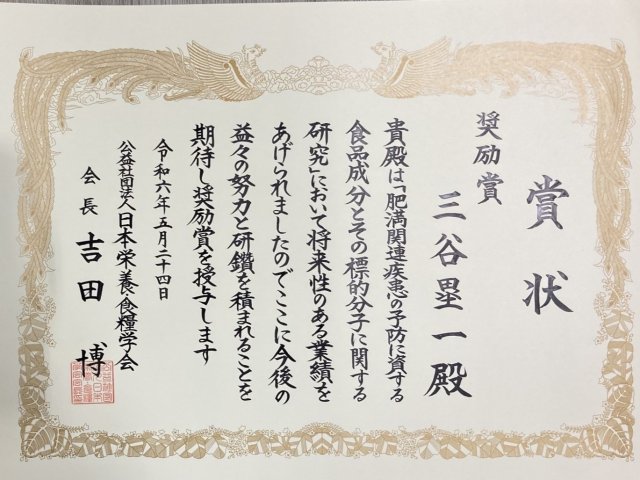 賞状
奨励賞
三谷塁一殿
貴殿は「肥満関連疾患の予防に資する
食品成分とその標的分子に関する
研究」において将来性のある業績を
あげられましたのでここに今後の
益々の努力と研鑽を積まれることを
期待し奨励賞を授与します
令和六年五月二十四日
公益社団法人日本栄養・食糧学会
会長 吉田 博